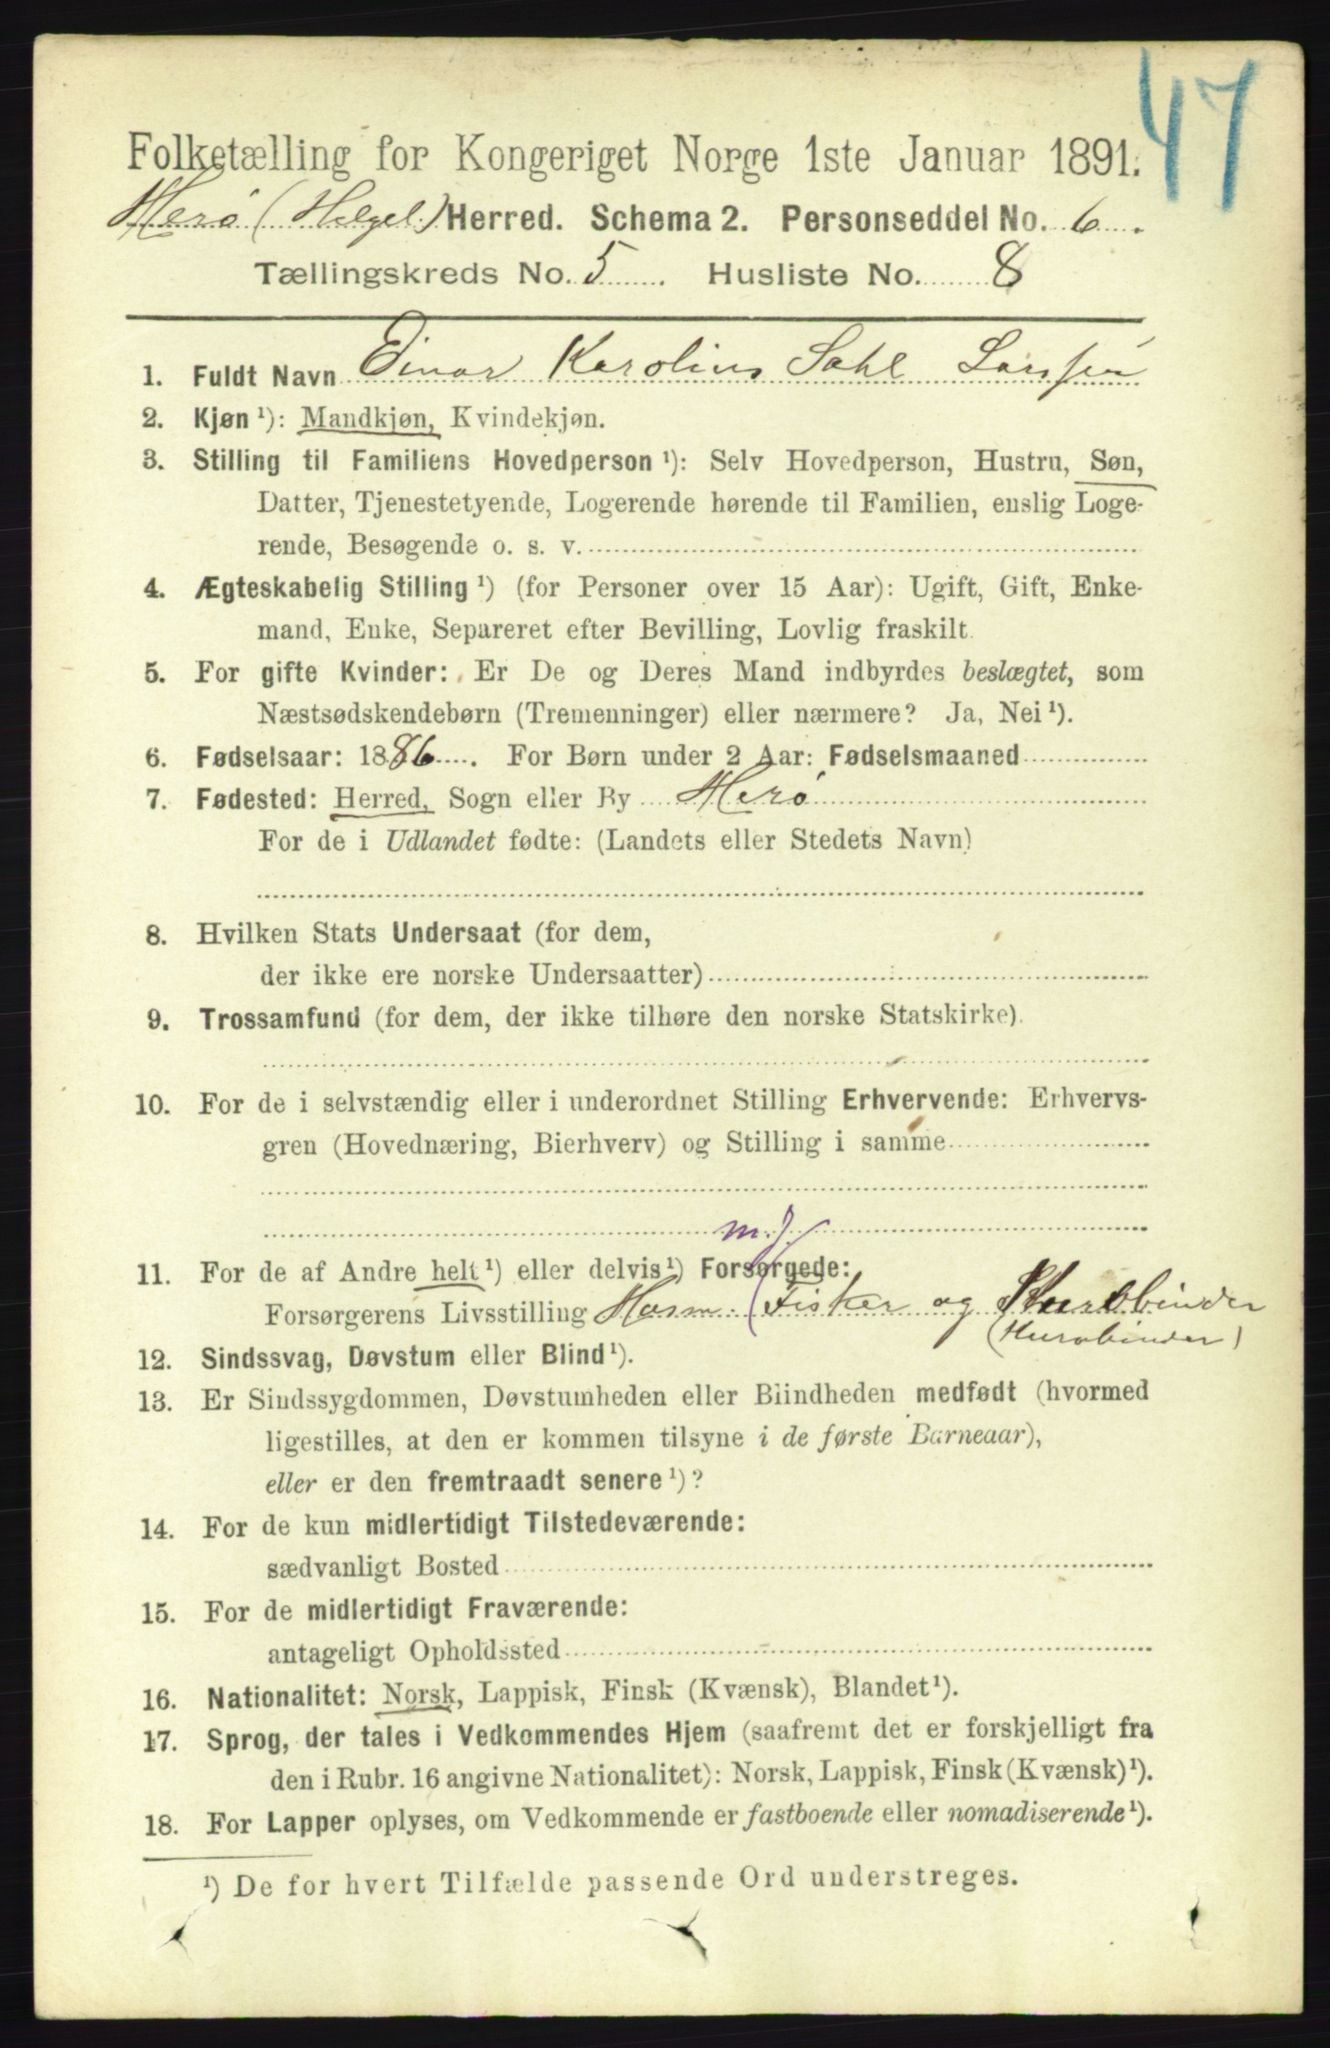 47
Folketælling for Kongeriget Norge 1ste Januar 1891.
Herø (Helgel.) Herred. Schema 2. Personseddel No. 6.
Tællingskreds No. 5. Husliste No. 8
1. Fuldt Navn Einar Karolius Dahl Larssen
2. Kjøn ¹): Mandkjøn, Kvindekjøn.
3. Stilling til Familiens Hovedperson ¹): Selv Hovedperson, Hustru, Søn,
Datter, Tjenestetyende, Logerende hørende til Familien, enslig Loge-
rende, Besøgende o. s. v.
4. Ægteskabelig Stilling ¹) (for Personer over 15 Aar): Ugift, Gift, Enke-
mand, Enke, Separeret efter Bevilling, Lovlig fraskilt.
5. For gifte Kvinder: Er De og Deres Mand indbyrdes beslægtet, som
Næstsødskendebørn (Tremenninger) eller nærmere? Ja, Nei ¹).
6. Fødselsaar: 1886. For Børn under 2 Aar: Fødselsmaaned
7. Fødested: Herred, Sogn eller By Herø
For de i Udlandet fødte: (Landets eller Stedets Navn)
8. Hvilken Stats Undersaat (for dem,
der ikke ere norske Undersaatter)
9. Trossamfund (for dem, der ikke tilhøre den norske Statskirke).
10. For de i selvstændig eller i underordnet Stilling Erhvervende: Erhvervs-
gren (Hovednæring, Bierhverv) og Stilling i samme
m. J.
11. For de af Andre helt ¹) eller delvis ¹) Forsørgede:
Forsørgerens Livsstilling Husm. (Fisker og binder
12. Sindssvag, Døvstum eller Blind ¹).
13. Er Sindssygdommen, Døvstumheden eller Blindheden medfødt (hvormed
ligestilles, at den er kommen tilsyne i de første Barneaar),
eller er den fremtraadt senere ¹)?
14. For de kun midlertidigt Tilstedeværende:
sædvanligt Bosted
15. For de midlertidigt Fraværende:
antageligt Opholdssted
16. Nationalitet: Norsk, Lappisk, Finsk (Kvænsk), Blandet ¹).
17. Sprog, der tales i Vedkommendes Hjem (saafremt det er forskjelligt fra
den i Rubr. 16 angivne Nationalitet): Norsk, Lappisk, Finsk (Kvænsk) ¹).
18. For Lapper oplyses, om Vedkommende er fastboende eller nomadiserende ¹).
¹) De for hvert Tilfælde passende Ord understreges.